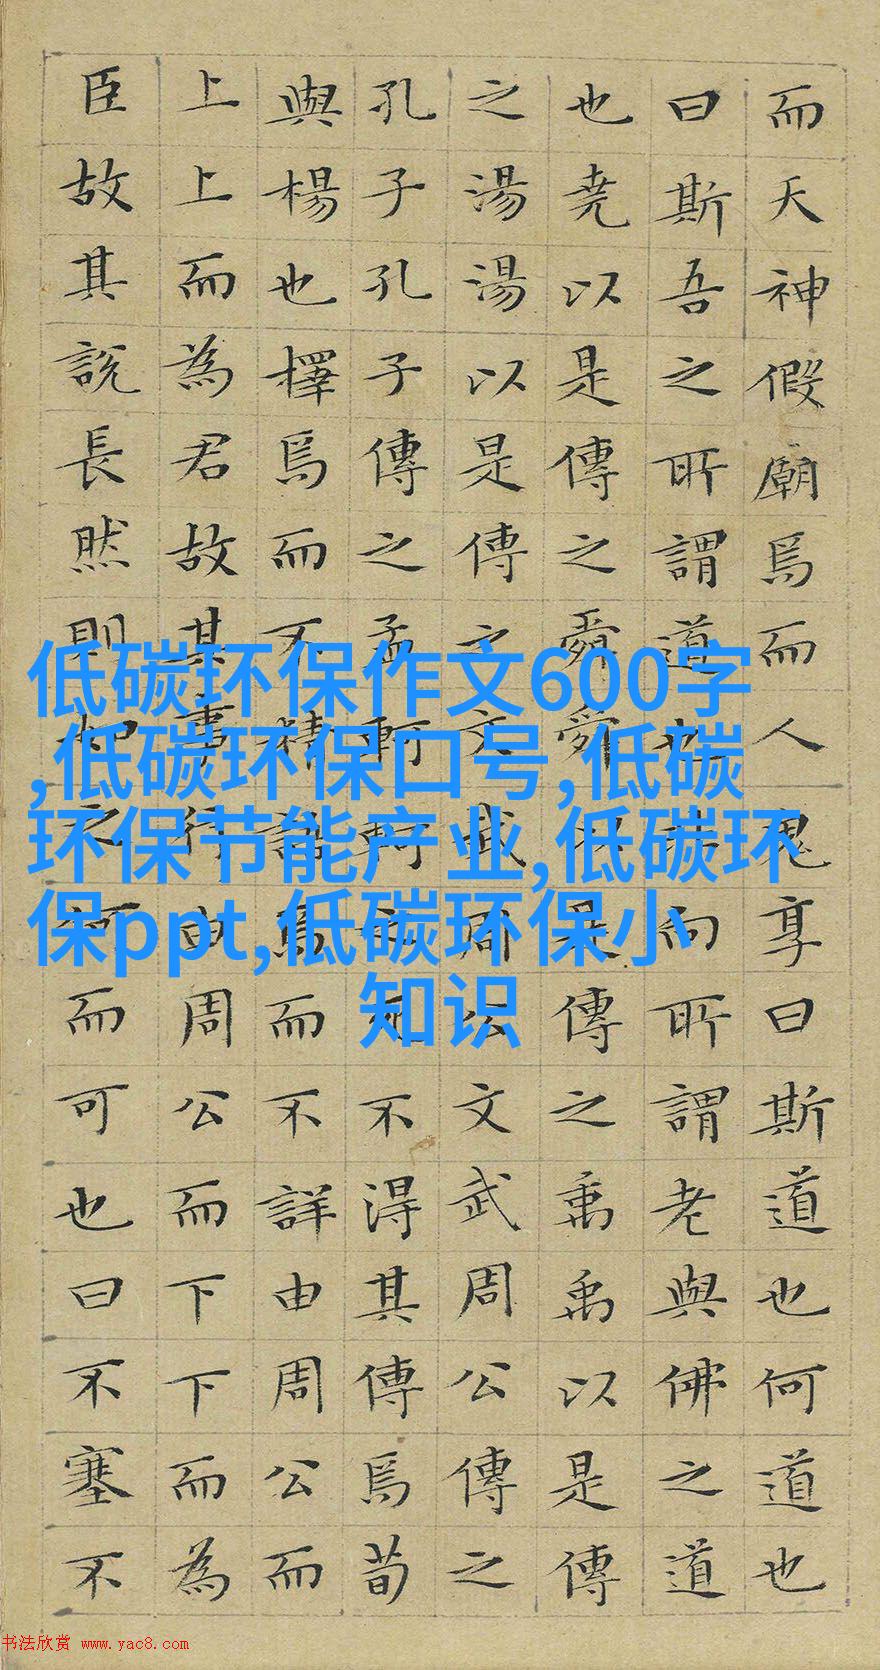 而天神假廟焉而人鬼享曰斯道也何道也
曰斯吾之所謂道也非向所謂老與佛之道
也堯以是傳之舜舜以是傳之禹禹以是傳
之湯湯以是傳之文武周公文武周公傳之
孔子孔子傳之孟軻軻之死不得其傳焉荀
與楊也擇焉而不精語焉而不詳由周公而
上上而為君故其事行由周公而下下而為
臣故其說長然則如之何而可也曰不塞不
低碳环保作文600字
,低碳环保口号,低碳
环保节能产业,低碳环
保ppt,低碳环保小
知识
书法欣赏 www.yac8.com